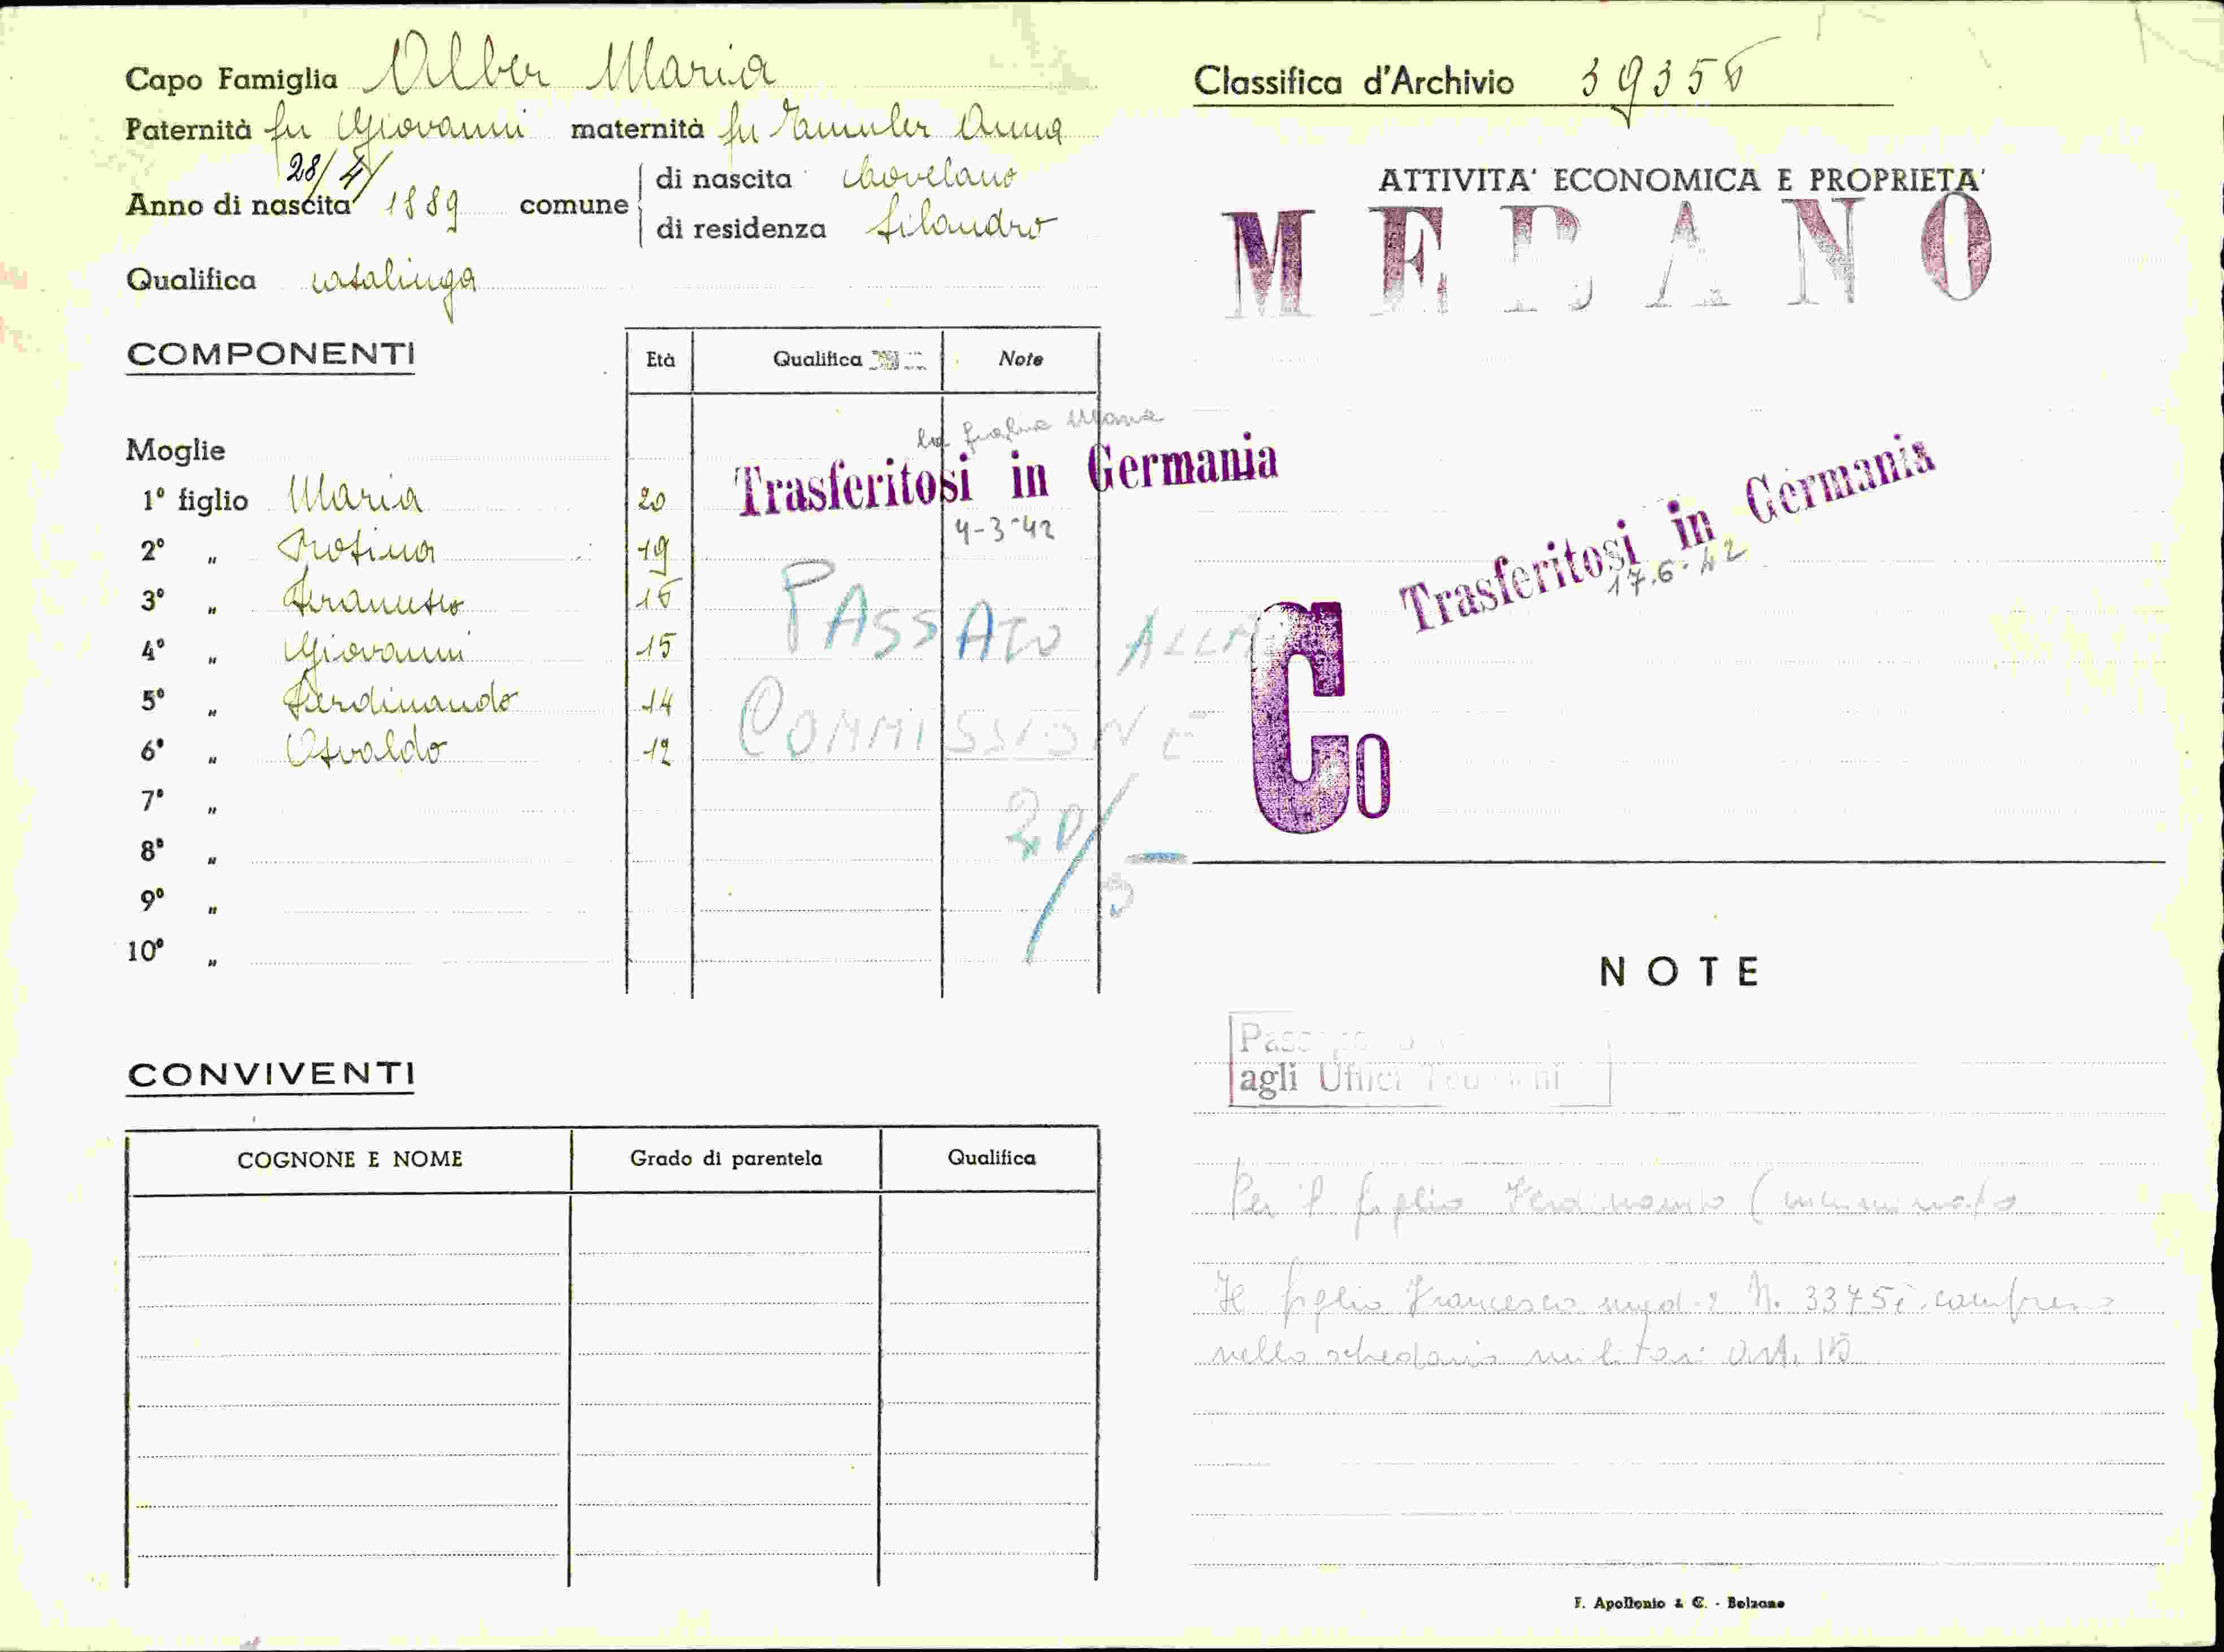 Capo Famiglia Alber Maria
Paternità fu Giovanni maternità fu Anna
28/4/
Anno di nascita 1889 comune di nascita Covelano
di residenza Silandro
Qualifica casalinga
COMPONENTI
Età Qualifica Note
la figlia Maria
Moglie
Trasferitosi in Germania
1° figlio Maria 20
4-3-42
2° " Rosina 19
3° " Francesco 16
PASSATO ALLA
4° " Giovanni 15
5° " Ferdinando 14
COMMISSIONE
6° " Osvaldo 12
7° "
20/5
8° "
9° "
10° "
CONVIVENTI
COGNONE E NOME Grado di parentela Qualifica
Classifica d'Archivio 39356
ATTIVITA' ECONOMICA E PROPRIETA'
MERANO
Trasferitosi in Germania
17.6.42
Co
NOTE
agli Uffici Tedeschi
Per il figlio Ferdinando (
Il figlio Francesco mod. 2 N. 3375
nello schedario militari art. 15
F. Apollonio & C. - Bolzano